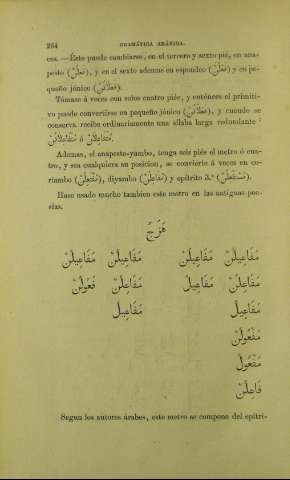 264 GRAMÁTICA ARÁBIGA.
ces.—Éste puede cambiarse, en el tercero y sexto pié, en ana-
pesto (فَعِلُنْ), y en el sexto ademas en espondeo (فَعْلُنْ) y en pe-
queño jónico (فَعِلَاتُنْ).
Tómase á veces con solos cuatro piés, y entónces el primiti-
vo puede convertirse en pequeño jónico (فَعِلَاتُنْ), y cuando se
conserva recibe ordinariamente una sílaba larga redundante:
مُتَفَاعِلَاتُنْ ó
Ademas, el anapesto-yambo, tenga seis piés el metro ó cua-
tro, y sea cualquiera su posicion, se convierte á veces en co-
riambo (مُفْتَعِلُنْ), diyambo (مَفَاعِلُنْ) y epítrito 3.º (مُسْتَفْعِلُنْ).
Hase usado mucho tambien este metro en las antiguas poe-
sías.
هَزَجٌ
مَفَاعِيلُنْ مَفَاعِيلُنْ مَفَاعِيلُنْ مَفَاعِيلُنْ
مَفَاعِلُنْ مَفَاعِيلُ مَفَاعِيلُنْ فَعُولُنْ
مَفَاعِيلُ مَفَاعِيلُ
مَفْعُولُنْ
مَفْعُولُ
فَاعِلُنْ
Segun los autores árabes, este metro se compone del epítri-